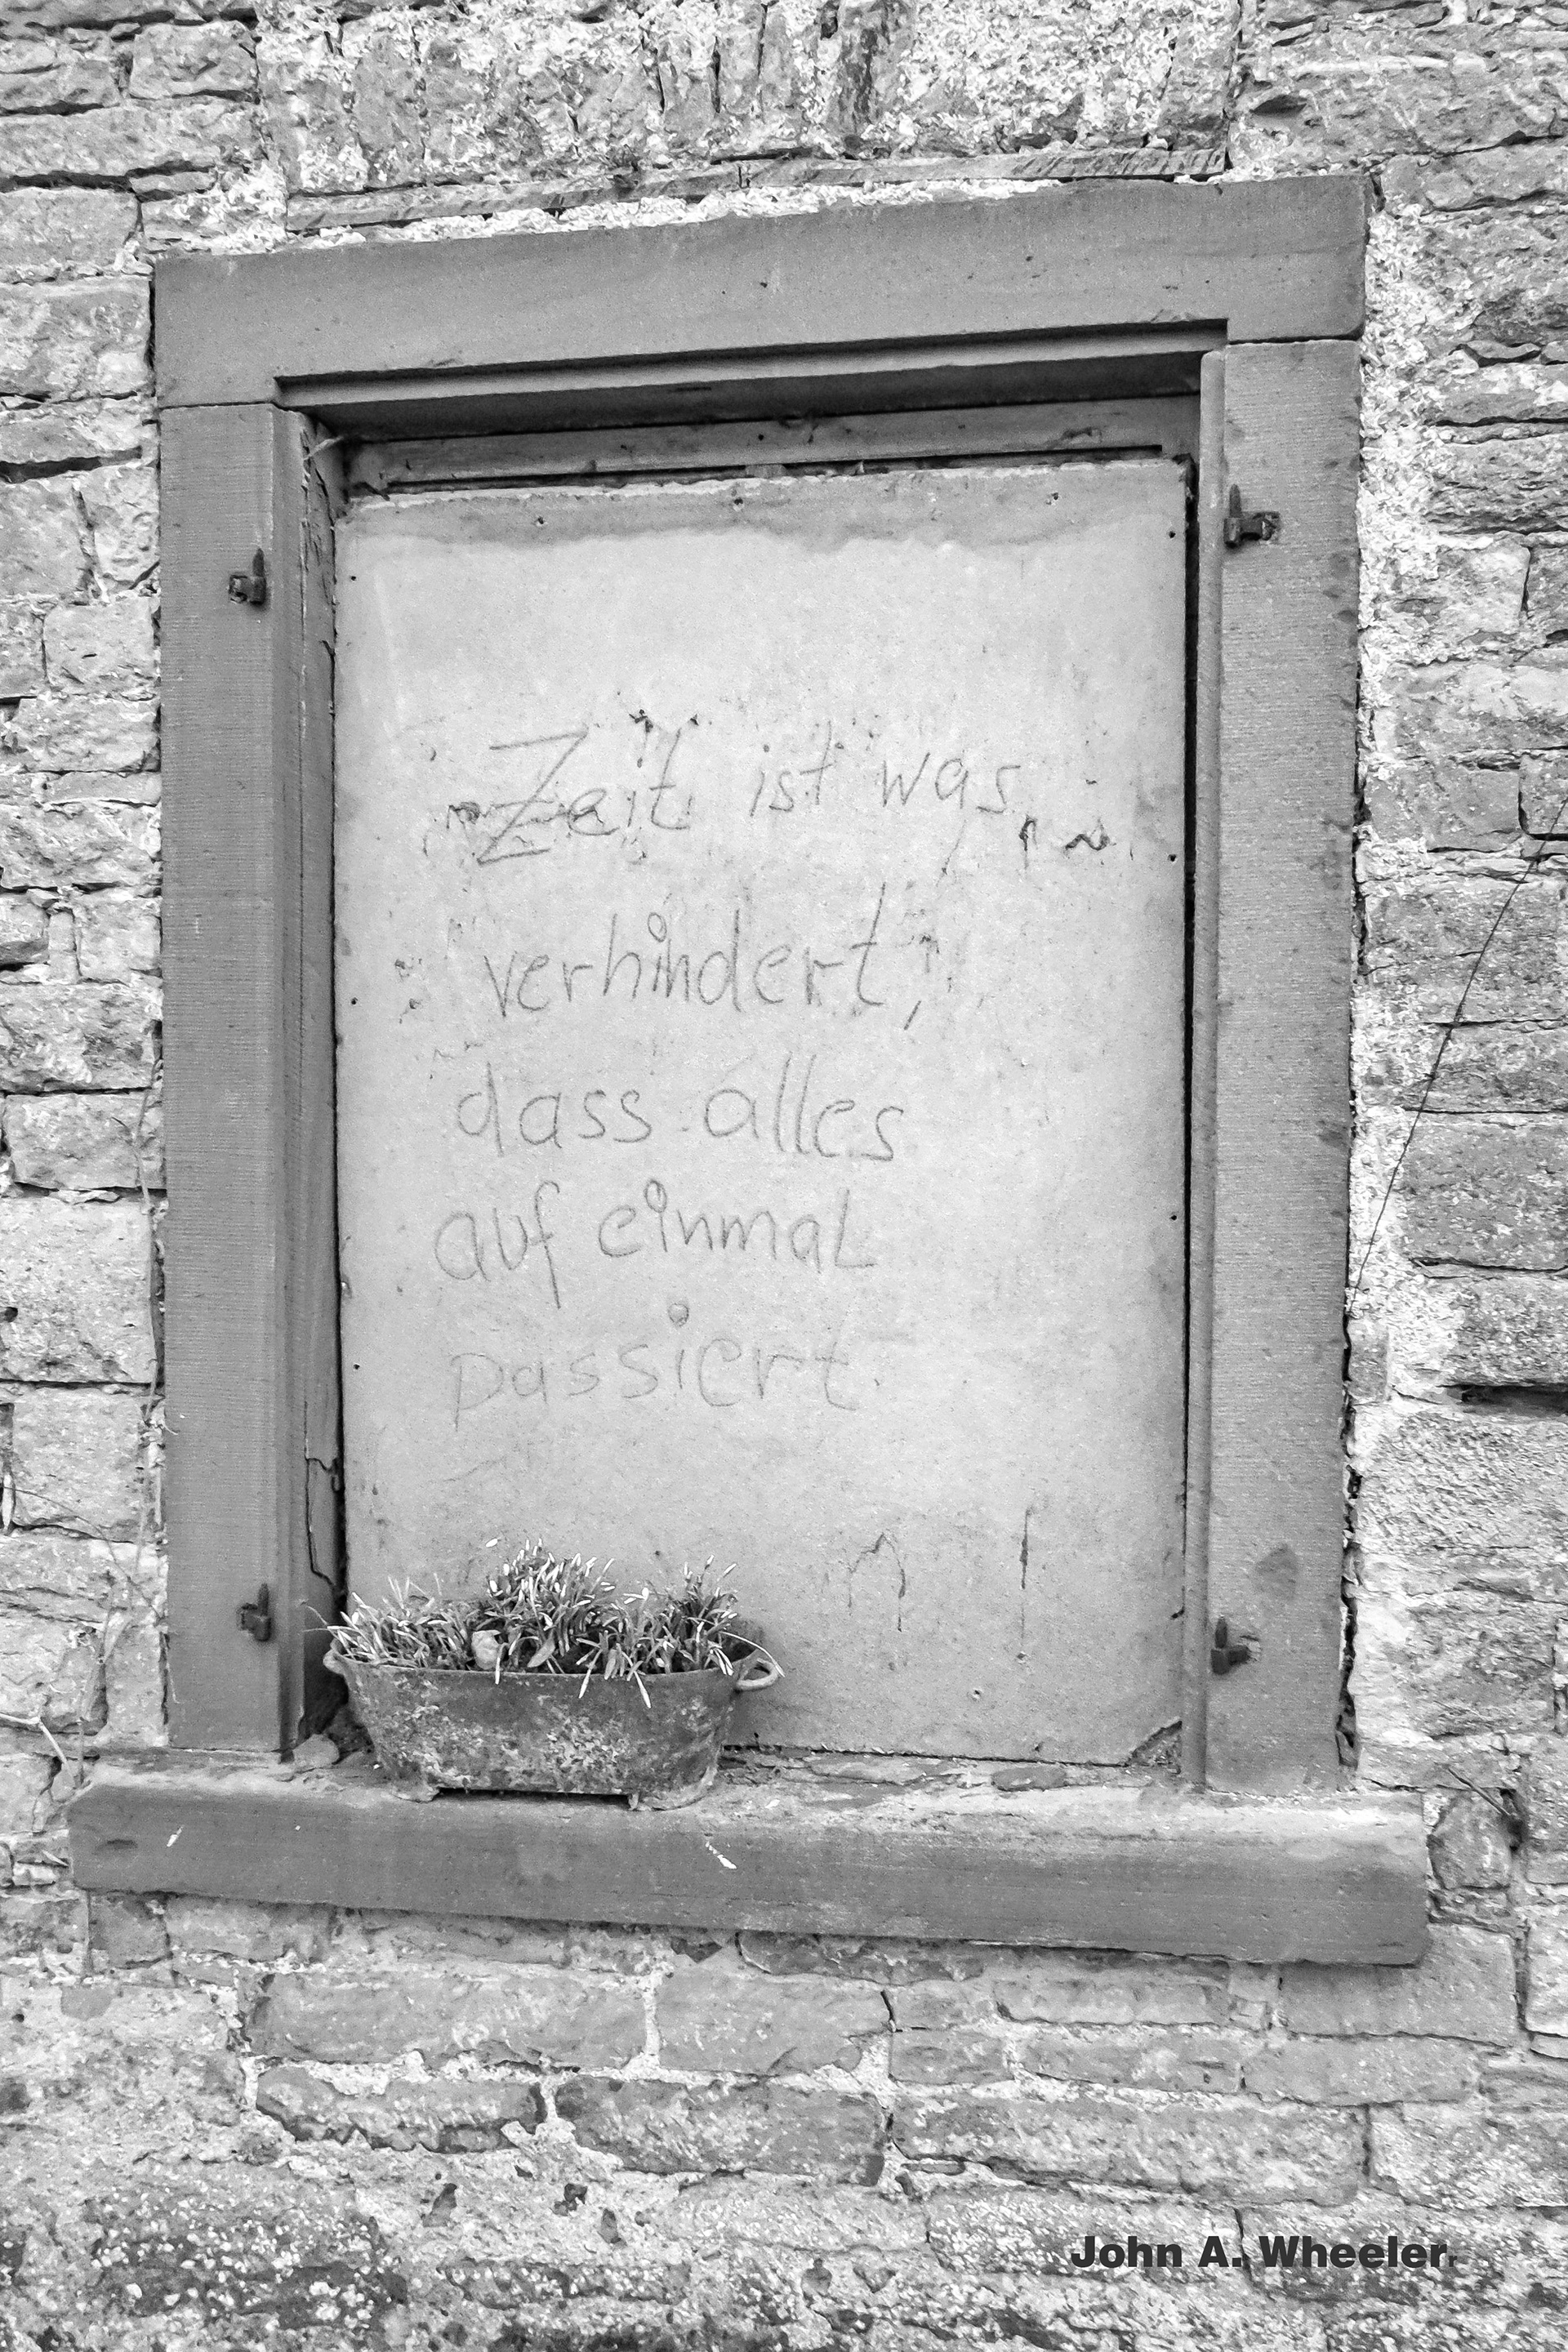 Zeit ist was
verhindert,
dass alles
auf einmal
passiert.
John A. Wheeler